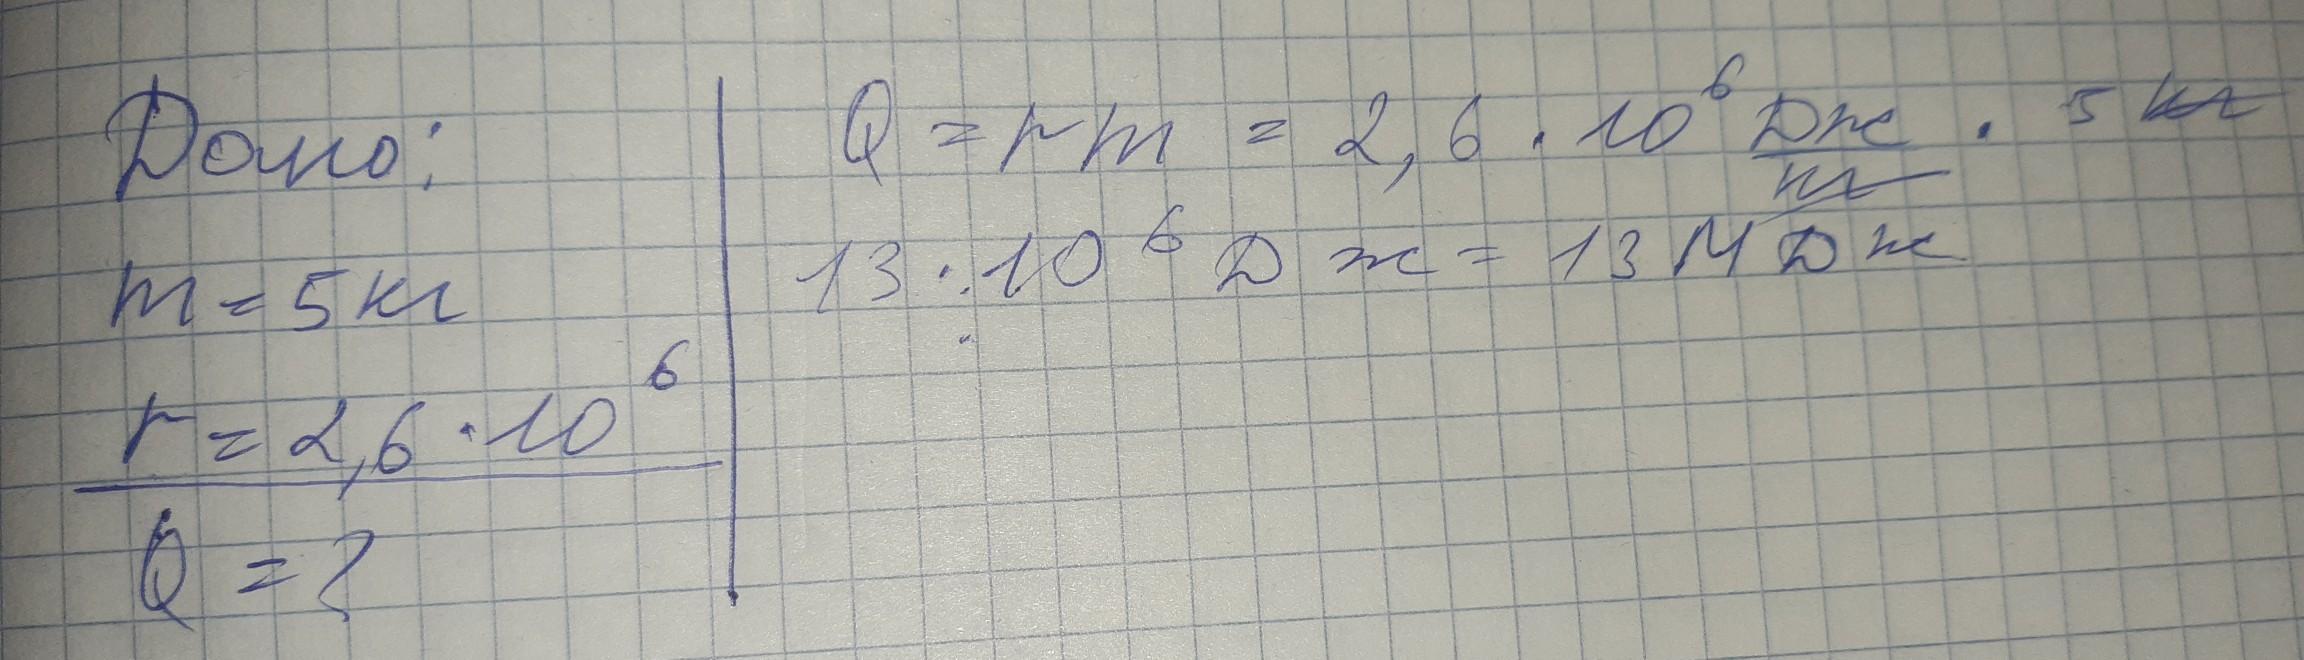 Дано:
m = 5 кг
r = 2,6 · 10⁶
Q = ?
Q = rm = 2,6 · 10⁶ Дж/кг · 5 кг
13 · 10⁶ Дж = 13 МДж